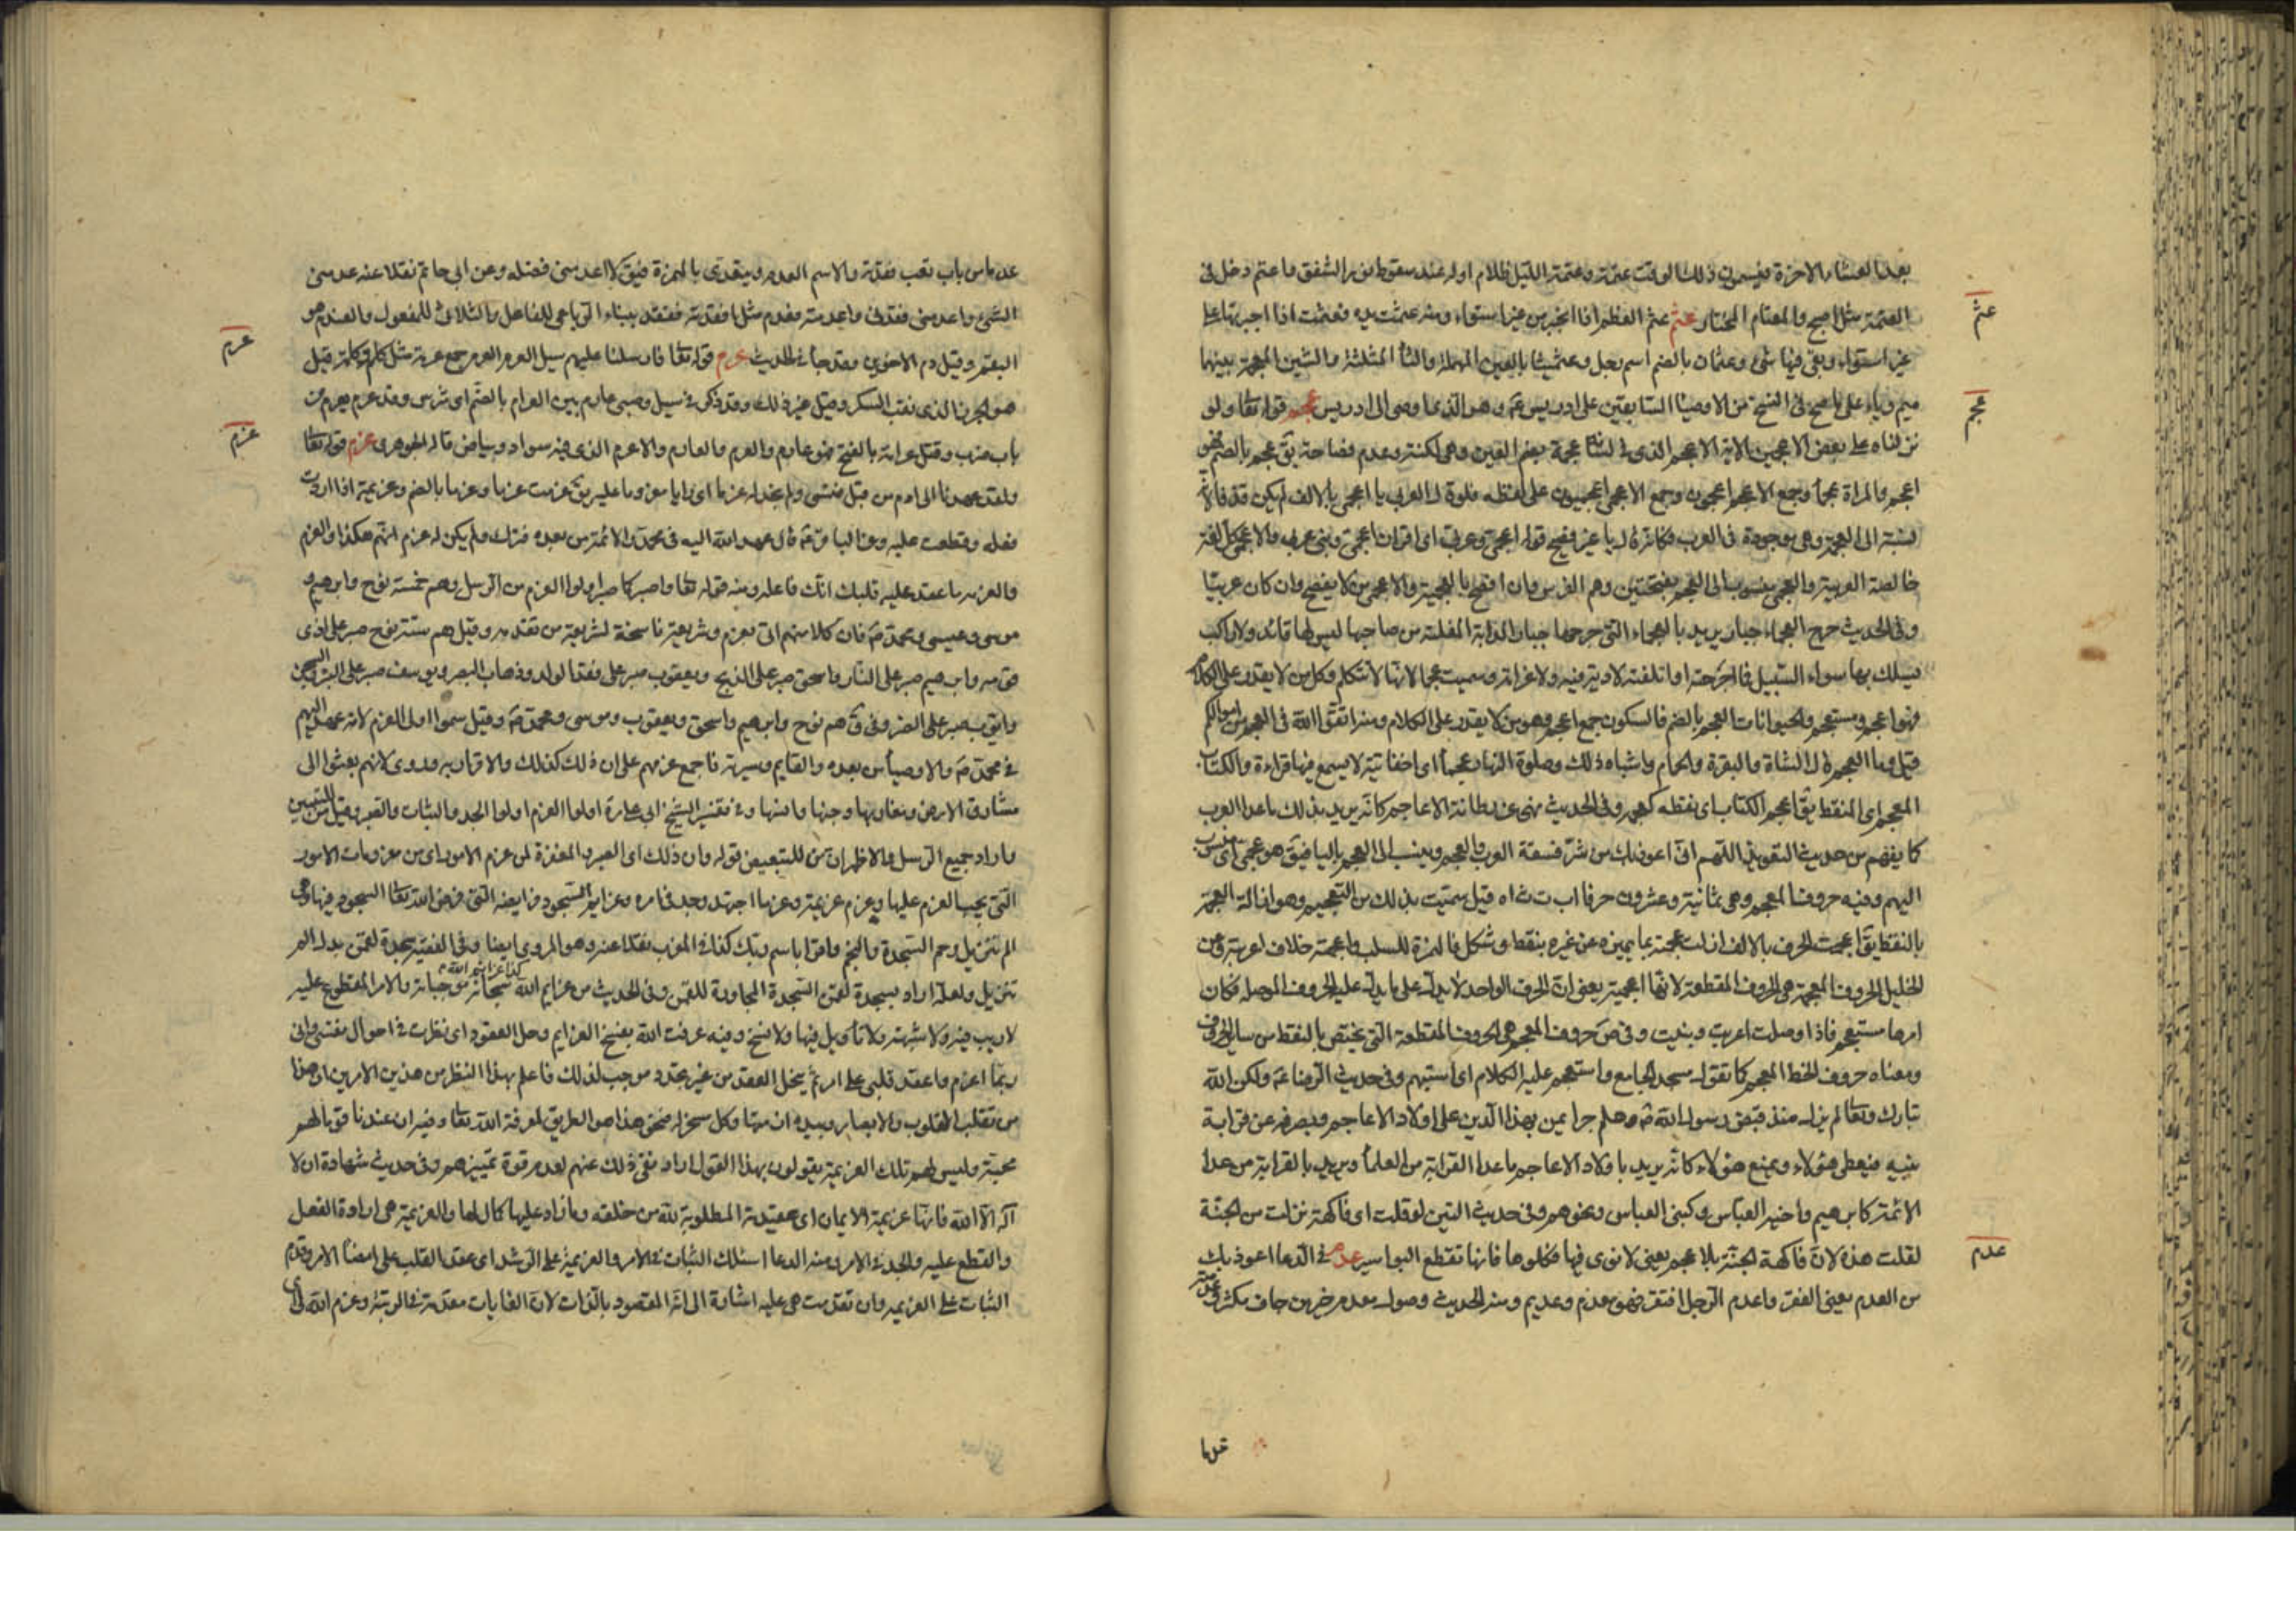 بعد العشاء الاخرة فيسمون ذلك الوقت عتمة وعتمة الليل ظلام اوله عند سقوط نور الشفق واعتم دخل فى
العتمة مثل اصبح والمعتام المختار عثم عثم العظم اذا انجبر من غير استواء ومنه عثمت يده فعثمت اذا اجبرتها على
غير استواء وبقى فيها شىء وعثمان بالضم اسم رجل وعثميشا بالعين المهملة والثاء المثلثة والشين المعجمة بينهما
ميم وياء على ما صح فى النسخ من الاوصياء السابقين على ادريس عم وهو الذى اوصى الى ادريس عجم قوله تعا ولو
نزلناه على بعض الاعجمين الاية الاعجم الذى فى لسانه عجمة بضم العين وهى لكنة وعدم فصاحة يق عجم بالضم فهو
اعجم والمراة عجماء وجمع الاعجم اعجمون وجمع الاعجمى اعجميون على لفظه فلو قال لعربى يا اعجمى بالالف لم يكن قذفا لانه
نسبة الى العجمة وهى موجودة فى العرب فكانه قال يا غير فصيح قوله اعجمى وعربى اى اقران اعجمى ونبى عربى والاعجمى كل لغة
خالصة العربية والعجمى منسوب الى العجم بفتحتين وهم الفرس وان افصح بالعجمية والاعجمى من لا يفصح وان كان عربيا
وفى الحديث جرح العجماء جبار يريد بالعجماء التى جرحها جبار الدابة المفلتة من صاحبها ليس لها قائد ولا راكب
يسلك بها سواء السبيل فما جرحته او اتلفته لا دية فيه ولا غرامة وسميت عجما لانها لا تتكلم وكل من لا يقدر على الكلام
فهو اعجم ومستعجم والحيوانات العجم بالضم فالسكون جمع اعجم وهو من لا يقدر على الكلام ومنه اتقوا الله فى العجم من اموالكم
قيل وما العجم قال الشاة والبقرة والحمام واشباه ذلك وصلوة النهار عجماء اى اخفاتية لا يسمع فيها قراءة والكتاب
المعجم اى المنقط يق اعجم الكتاب اى نقطه كعجم وفى الحديث نهى عن بطانة الاعاجم كانه يريد بذلك ما عدا العرب
كما يفهم من حديث التعويذ اللهم انى اعوذ بك من شر فسقة العرب والعجم وينسب الى العجم بالياء فيق هو عجمى اى منسوب
اليهم وفيه حروف المعجم وهى ثمانية وعشرون حرفا ا ب ت ث اه قيل سميت بذلك من التعجيم وهو ازالة العجمة
بالنقط يق اعجمت الحرف بالالف ازلت عجمته بما يميزه عن غيره بنقط وشكل فالهمزة للسلب واعجمته خلاف اعربته وعن
الخليل الحروف المعجمة هى الحروف المقطعة لانها اعجمية يعنى ان الحرف الواحد لا يدل على ما يدل عليه الحروف الموصلة فكان
امرها مستعجم فاذا وصلت اعربت وبينت وفى ص حروف المعجم هى الحروف المقطعة التى يختص بالنقط من سائر الحروف
ومعناه حروف الخط المعجم كما تقول مسجد الجامع واستعجم عليه الكلام اى استبهم وفى حديث الرضا عم ولكن الله
تبارك وتعا لم يزل منذ قبض رسول الله ص وهلم جرا يمن بهذا الدين على اولاد الاعاجم ويصرفه عن قرابة
نبيه فيعطى هؤلاء ويمنع هؤلاء كانه يريد باولاد الاعاجم ما عدا القرابة من العلماء ويريد بالقرابة من عدا
الائمة كابرهيم واخيه العباس وكبنى العباس ونحوهم وفى حديث التين لو قلت اى فاكهة نزلت من الجنة
لقلت هذه لان فاكهة الجنة بلا عجم يعنى لا نوى فيها فكلوها فانها تقطع البواسير عدم فى الدعا اعوذ بك
من العدم يعنى الفقر واعدم الرجل افتقر فهو معدم وعديم ومنه الحديث وصول معدم خير من جاف مكثر وعدمته
عدما
عثم
عجم
عدم
عدما من باب تعب فقدته والاسم العدم ويتعدى بالهمزة فيق لا اعدمنى فضله وعن ابى حاتم نقلا عنه عدمنى
الشىء واعدمنى فقدنى واعدمته فعدم مثل افقدته ففقد ببناء الرباعى للفاعل والثلاثى للمفعول والعندم هو
البقم وقيل دم الاخوين وقد جاء فى الحديث عرم قوله تعا فارسلنا عليهم سيل العرم العرم جمع عرمة مثل كلم وكلمة قيل
هو الجرذ الذى نقب السكر وقيل غير ذلك وقد ذكر فى سيل وصبى عارم بين العرام بالضم اى شرس وقد عرم يعرم من
باب ضرب وقتل عرامة بالفتح فهو عارم والعرم والعارم والاعرم الذى فيه سواد وبياض قاله الجوهرى عزم قوله تعا
ولقد عهدنا الى ادم من قبل فنسى ولم نجد له عزما اى رايا معزوما عليه يق عزمت عزما وعزما بالضم وعزيمة اذا اردت
فعله وقطعت عليه وعن الباقر عم قال عهد الله اليه فى محمد والائمة من بعده فترك ولم يكن له عزم انهم هكذا والعزم
والعزيمة ما عقد عليه قلبك انك فاعله ومنه قوله تعا واصبر كما صبر اولوا العزم من الرسل وهم خمسة نوح وابرهيم و
موسى وعيسى ومحمد ص فان كلا منهم اتى بعزم وشريعة ناسخة لشريعة من تقدمه وقيل هم ستة نوح صبر على اذى
قومه وابرهيم صبر على النار واسحق صبر على الذبح ويعقوب صبر على فقد الولد وذهاب البصر ويوسف صبر على البئر والسجن
وايوب صبر على الضر وفى ق هم نوح وابرهيم واسحق ويعقوب وموسى ومحمد ص وقيل سموا اولى العزم لانه عهد اليهم
فى محمد ص والاوصياء من بعده والقايم وسيرته فاجمع عزمهم على ان ذلك كذلك والاقرار به وروى لانهم بعثوا الى
مشارق الارض ومغاربها وجنها وانسها وفى تفسير الشيخ ابى على ره اولوا العزم اولوا الجد والثبات والصبر وقيل من للتبيين
واراد جميع الرسل والاظهر ان من للتبعيض قوله وان ذلك اى الصبر والمغفرة لمن عزم الامور اى من معزومات الامور
التى يجب العزم عليها وعزم عزيمة وعزما اجتهد وجد فى امره وعزايم السجود فرايضه التى فرض الله تعا السجود فيها وهى
الم تنزيل وحم السجدة والنجم واقرا باسم ربك كذا فى المغرب نقلا عنه وهو المروى ايضا وفى الفقيه سجدة لقمن بدل الم
تنزيل ولعله اراد بسجدة لقمن السجدة المجاورة للقمن وفى الحديث من عزايم الله كذا عزايم الله سبحانه موجباته والامر المقطوع عليه
لا ريب فيه ولا شبهة ولا تاويل فيها ولا نسخ وفيه عرفت الله بفسخ العزايم وحل العقود اى نظرت فى احوال نفسى وانى
ربما اعزم واعقد قلبى على امر ثم ينحل العقد من غير تجدد موجب لذلك فاعلم بهذا النظر من هذين الامرين ان هذا
من تقلب القلوب والابصار وبيده ازمتها وكل مسخر له فنحو هذا هو الطريق لمعرفة الله تعا وفيه ان عندنا قوما لهم
محبة وليس لهم تلك العزيمة يقولون بهذا القول اراد نفى ذلك عنهم لعدم قوة تمييزهم وفى حديث شهادة ان لا
اله الا الله فانها عزيمة الايمان اى عقيدته المطلوبة لله من خلقه وما زاد عليها كمال لها والعزيمة هى ارادة الفعل
والقطع عليه والجد فى الامر ومنه الدعا اسئلك الثبات فى الامر والعزيمة على الرشد اى عقد القلب على امضاء الامر وقدم
الثبات على العزيمة وان تقدمت هى عليه اشارة الى انه المقصود بالذات لان الغايات مقدمة فى الرتبة وعزم الله لى
عرم
عزم